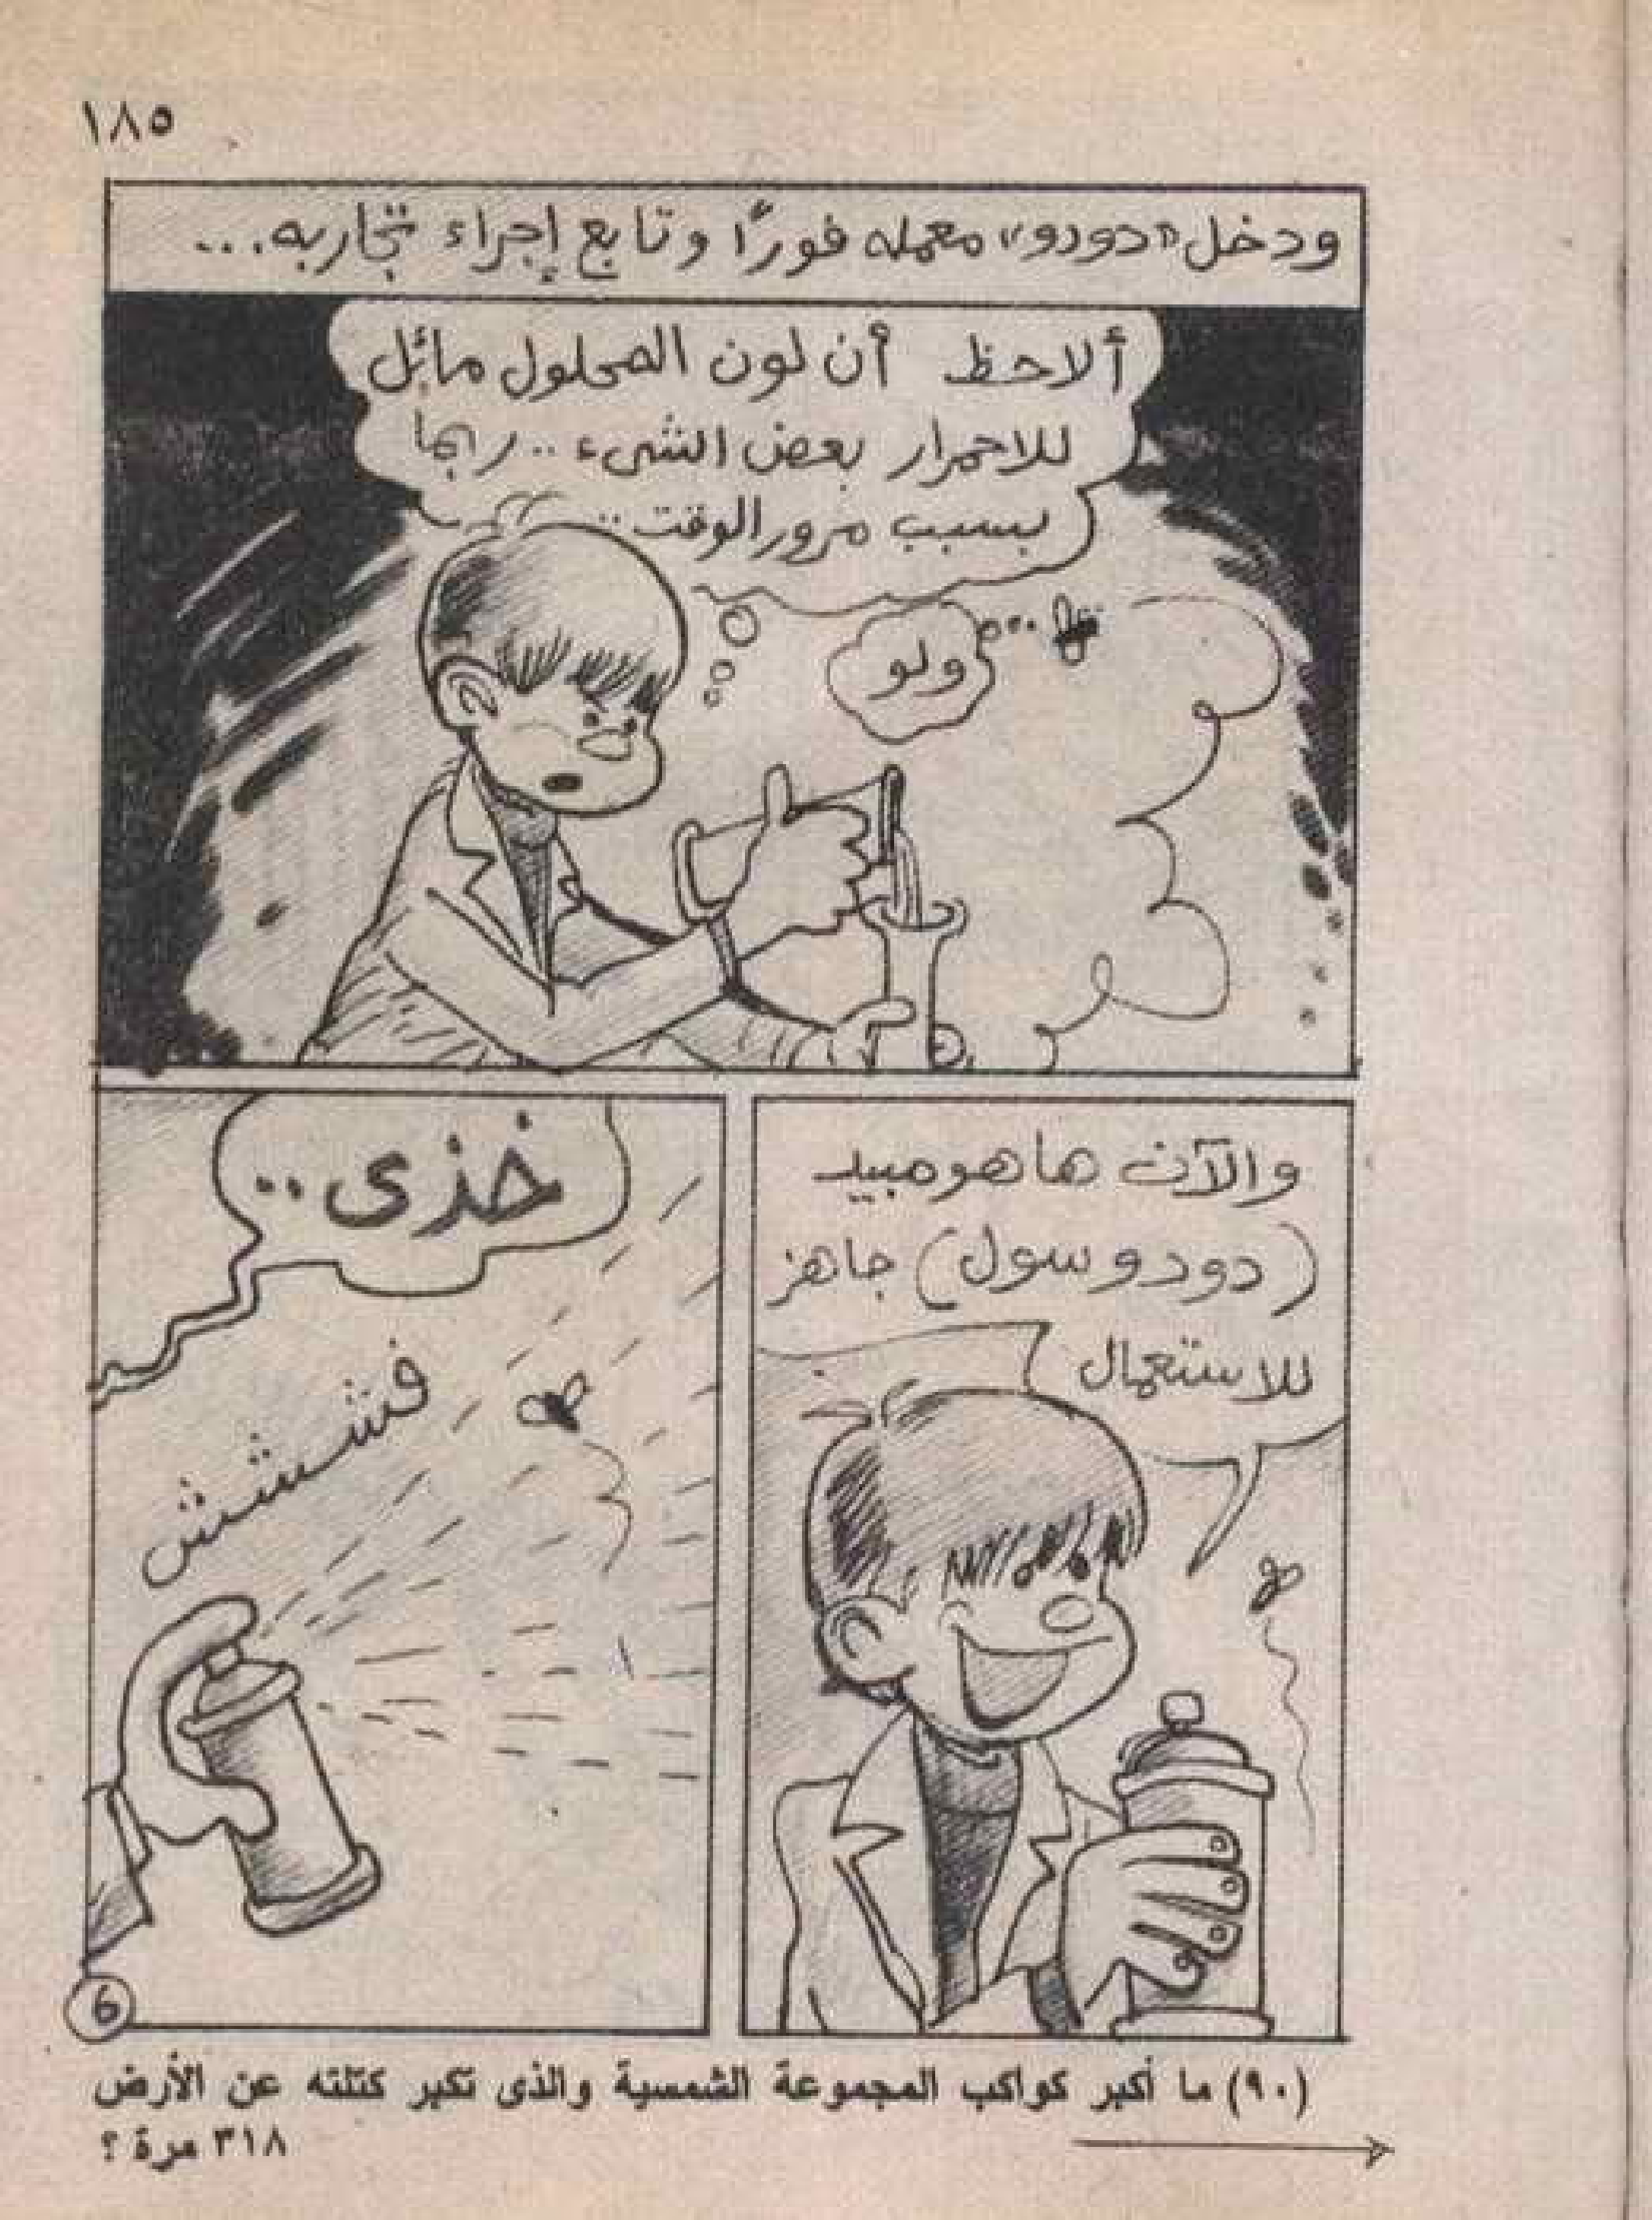 ١٨٥
ودخل «دودو» معمله فورًا وتابع إجراء تجاربه...
ألاحظ أن لون المحلول مائل
للاحمرار بعض الشىء .. ربما
بسبب مرور الوقت ..
ولو
والآن ها هو مبيد
(دودوسول) جاهز
للاستعمال
خذى ..
فشششش
6
(٩٠) ما أكبر كواكب المجموعة الشمسية والذى تكبر كتلته عن الأرض
٣١٨ مرة ؟